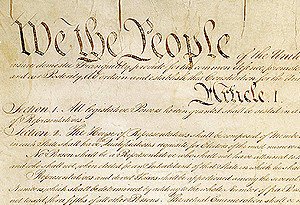 We the People of the Unit
insure domestic Tranquility, provide for the common defence, promote
and our Posterity, do ordain and establish this Constitution for the Unit
Article. I.
Section. 1. All legislative Powers herein granted shall be vested in a
of Representatives.
Section. 2. The House of Representatives shall be composed of Members
in each State shall have the Qualifications requisite for Electors of the most numer
No Person shall be a Representative who shall not have attained to
and who shall not, when elected, be an Inhabitant of that State in which he
Representatives and direct Taxes shall be apportioned among the several
Numbers, which shall be determined by adding to the whole Number of free
not taxed, three fifths of all other Persons. The actual Enumeration shall